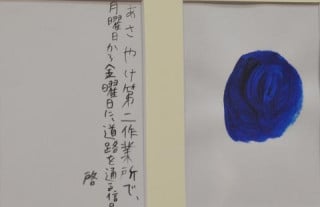 あさやけ第二作業所で、
月曜日から金曜日に、道路を通る信
啓